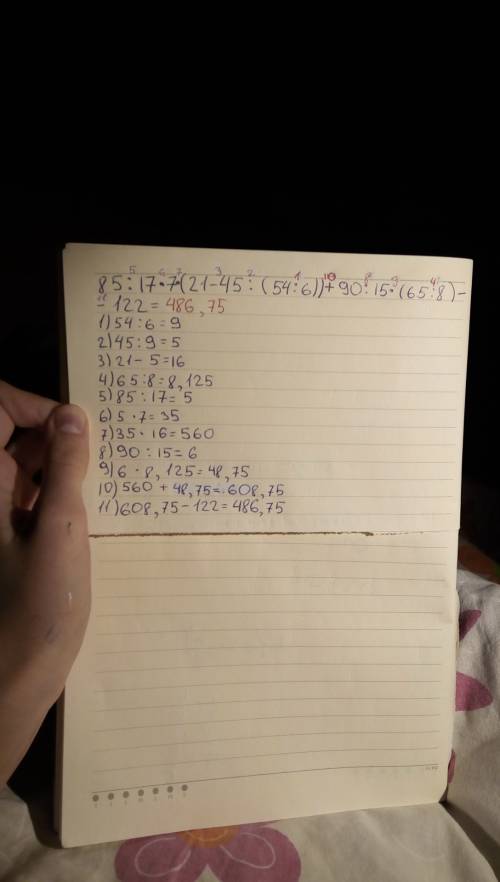 85:17·7·(21-45:(54:6))+90:15·(65:8)-
-122=486,75
1)54:6=9
2)45:9=5
3)21-5=16
4)65:8=8,125
5)85:17=5
6)5·7=35
7)35·16=560
8)90:15=6
9)6·8,125=48,75
10)560+48,75=608,75
11)608,75-122=486,75